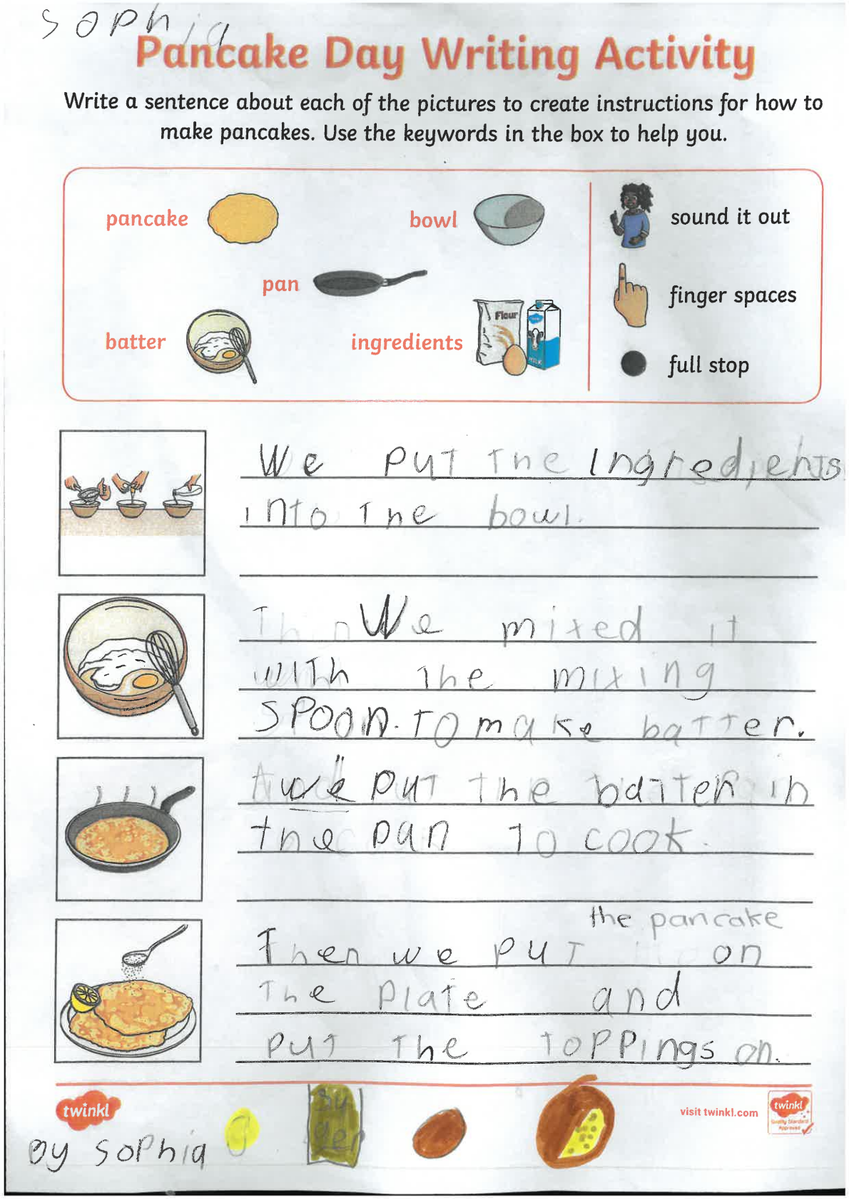 sophia
Pancake Day Writing Activity
Write a sentence about each of the pictures to create instructions for how to
make pancakes. Use the keywords in the box to help you.
pancake
bowl
sound it out
pan
finger spaces
batter
Flour
MILK
ingredients
full stop
We put the Ingredients
into the bowl.
We mixed it
with the mixing
spoon. To make batter.
we put the batter in
the pan to cook.
the pancake
Then we put on
the plate and
put the toppings on.
twinkl
visit twinkl.com
twinkl
Quality Standard
Approved
by sophia